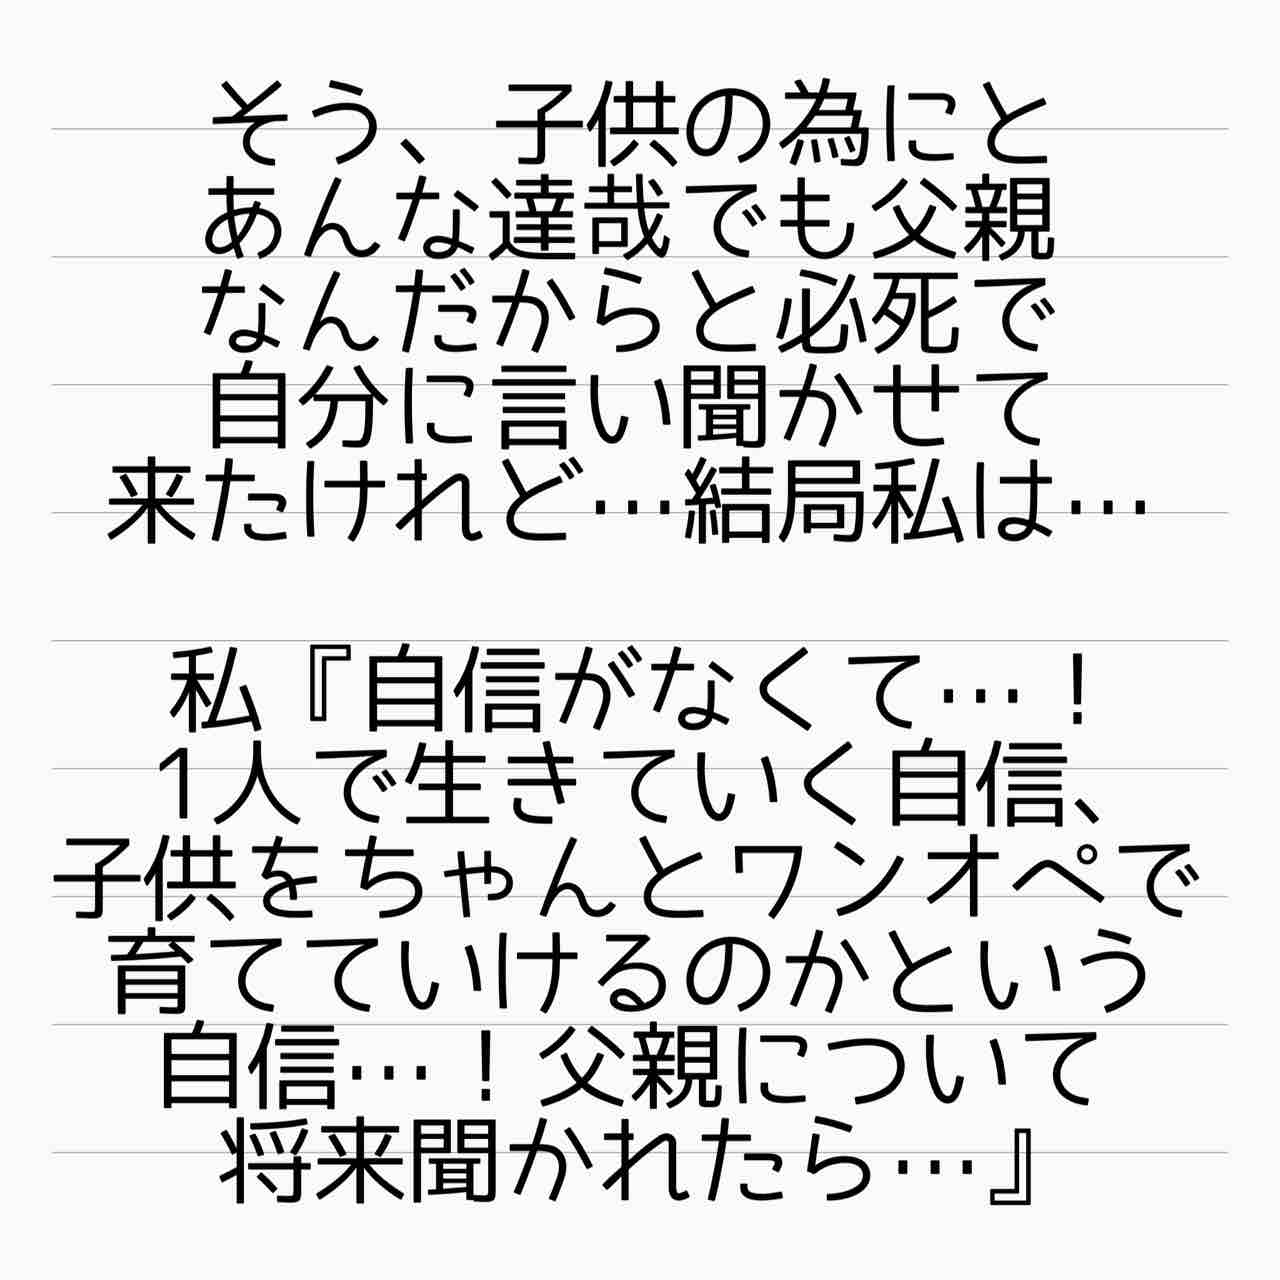 そう、子供の為にと
あんな達哉でも父親
なんだからと必死で
自分に言い聞かせて
来たけれど…結局私は…
私『自信がなくて…！
1人で生きていく自信、
子供をちゃんとワンオペで
育てていけるのかという
自信…！父親について
将来聞かれたら…』